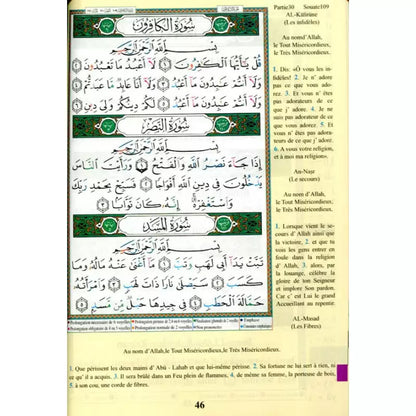 سُورَةُ الكَافِرُونَ
بِسْمِ ٱللَّهِ ٱلرَّحْمَٰنِ ٱلرَّحِيمِ
قُلْ يَٰٓأَيُّهَا ٱلْكَٰفِرُونَ ١ لَآ أَعْبُدُ مَا تَعْبُدُونَ ٢
وَلَآ أَنتُمْ عَٰبِدُونَ مَآ أَعْبُدُ ٣ وَلَآ أَنَا۠ عَابِدٌ مَّا عَبَدتُّمْ ٤
وَلَآ أَنتُمْ عَٰبِدُونَ مَآ أَعْبُدُ ٥ لَكُمْ دِينُكُمْ وَلِىَ دِينِ ٦
سُورَةُ النَّصْرِ
بِسْمِ ٱللَّهِ ٱلرَّحْمَٰنِ ٱلرَّحِيمِ
إِذَا جَآءَ نَصْرُ ٱللَّهِ وَٱلْفَتْحُ ١ وَرَأَيْتَ ٱلنَّاسَ
يَدْخُلُونَ فِى دِينِ ٱللَّهِ أَفْوَاجًا ٢ فَسَبِّحْ بِحَمْدِ رَبِّكَ
وَٱسْتَغْفِرْهُ إِنَّهُۥ كَانَ تَوَّابًۢا ٣
سُورَةُ المَسَدِ
بِسْمِ ٱللَّهِ ٱلرَّحْمَٰنِ ٱلرَّحِيمِ
تَبَّتْ يَدَآ أَبِى لَهَبٍ وَتَبَّ ١ مَآ أَغْنَىٰ عَنْهُ مَالُهُۥ وَمَا
كَسَبَ ٢ سَيَصْلَىٰ نَارًا ذَاتَ لَهَبٍ ٣ وَٱمْرَأَتُهُۥ
حَمَّالَةَ ٱلْحَطَبِ ٤ فِى جِيدِهَا حَبْلٌ مِّن مَّسَدٍۭ ٥
Partie30 Sourate109
AL-Kâfirûne
(Les infidèles)
Au nom d'Allah,
le Tout Miséricordieux,
le Très Miséricordieux.
1. Dis: «Ô vous les in-
fidèles! 2. Je n' adore
pas ce que vous ado-
rez. 3. Et vous n' êtes
pas adorateurs de ce
que j' adore. 4. Je ne
suis pas adorateur de ce
que vous adorez. 5. Et
vous n' êtes pas adora-
teurs de ce que j' adore.
6. A vous votre religion,
et à moi ma religion».
An-Naṣr
(Le secours)
Au nom d'Allah,
le Tout Miséricordieux,
le Très Miséricordieux.
1. Lorsque vient le se-
cours d' Allah ainsi que
la victoire, 2. et que tu
vois les gens entrer en
foule dans la religion
d' Allah, 3. alors, par
la louange, célèbre la
gloire de ton Seigneur
et implore Son pardon.
Car c' est Lui le grand
Accueillant au repentir.
AL-Masad
(Les Fibres)
Au nom d'Allah,le Tout Miséricordieux,le Très Miséricordieux.
1. Que périssent les deux mains d' Abû - Lahab et que lui-même périsse. 2. Sa fortune ne lui sert à rien, ni
ce qu' il a acquis. 3. Il sera brûlé dans un Feu plein de flammes, 4. de même sa femme, la porteuse de bois,
5. à son cou, une corde de fibres.
46